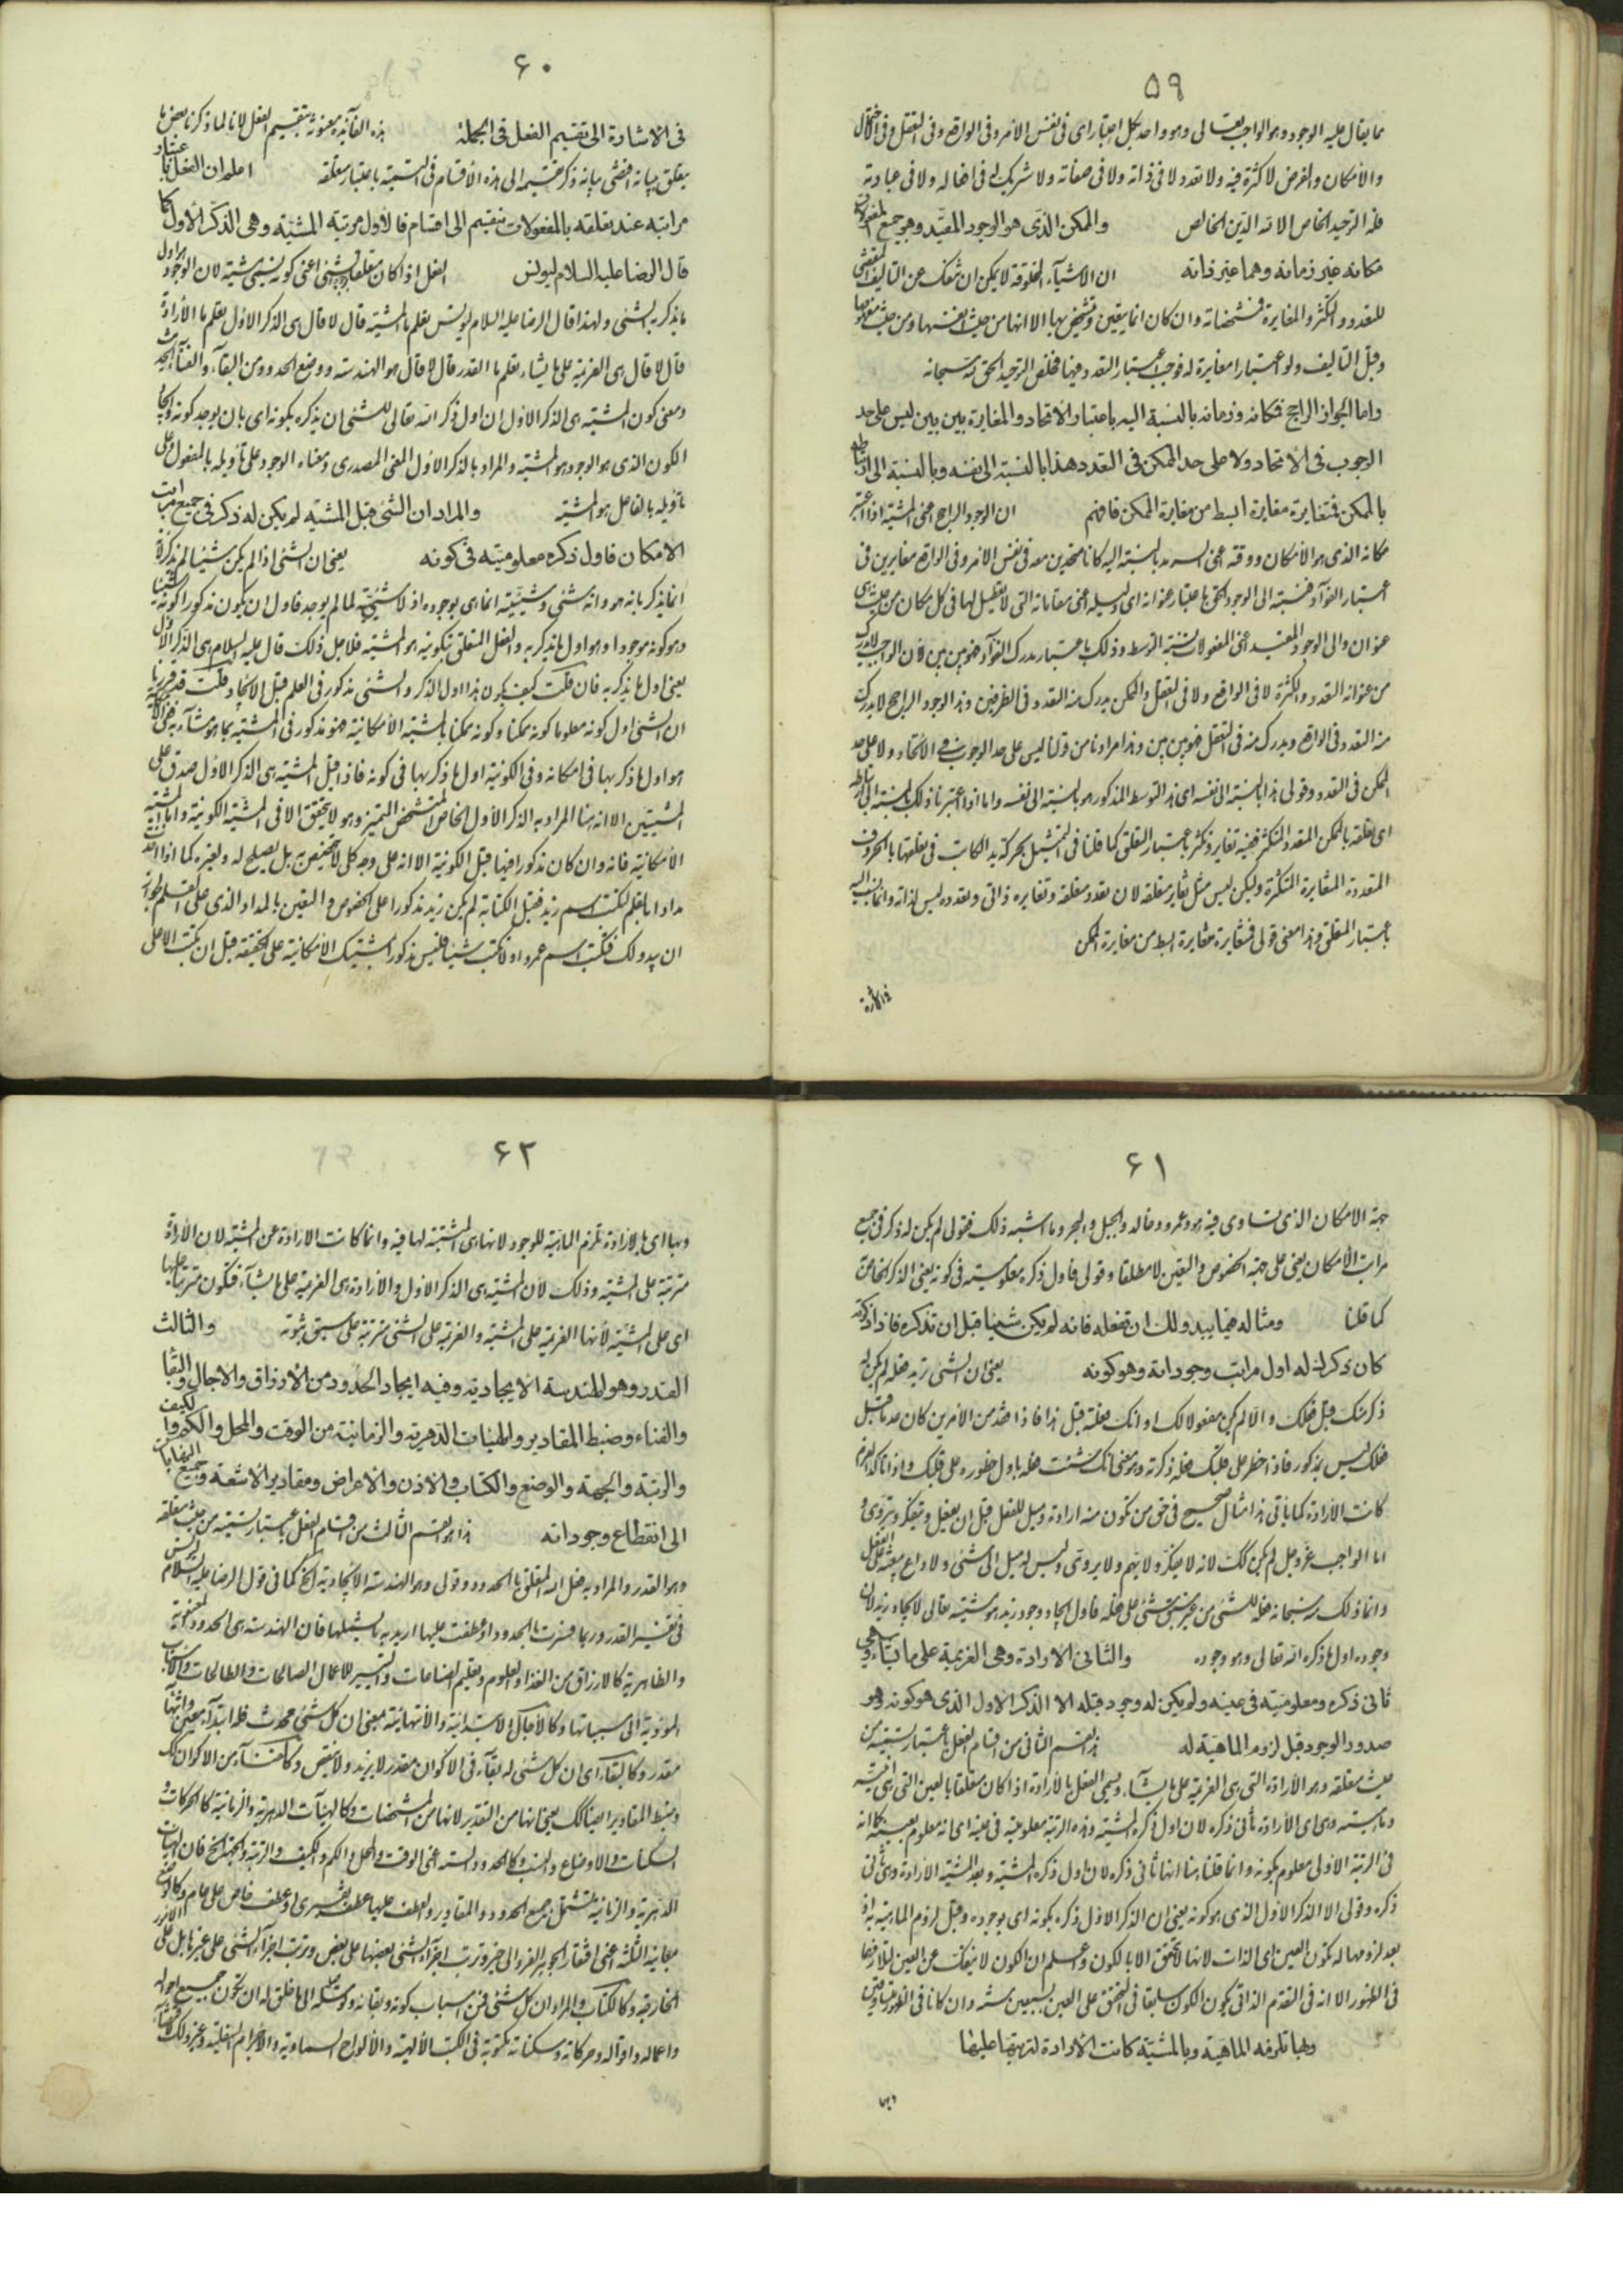 ۵۹
مما يقال عليه الوجود وهو الواجب تعالى وهو واحد بكل اعتبار اى فى نفس الأمر وفى الواقع وفى التعقل وفى احتمال
والامكان والفرض لا كثرة فيه ولا تعدد لا فى ذاته ولا فى صفاته ولا شريك له فى افعاله ولا فى عبادته
فله التوحيد الخاص الا لله الدين الخالص والممكن الذى هو الوجود المقيد وهو جميع المفعولات
مكانه غير زمانه وهما غير ذاته ان الاشياء المخلوقة لا يمكن ان تنفك عن التأليف المقتضى
للتعدد والتكثر والمغايرة فى مشخصاته وان كان انما يتعين ويتشخص بها الا انها من حيث انفسها ومن حيث
وقبل التأليف ولو اعتبارا مغايرة له فوجب اعتبار التعدد فيها فخلص التوحيد الحق له سبحانه
واما الجواز الراجح فمكانه وزمانه بالنسبة اليه باعتبار الاتحاد والمغايرة بين بين ليس على حد
الوجوب فى الاتحاد ولا على حد الممكن فى التعدد هذا بالنسبة الى نفسه وبالنسبة الى ارتباطه
بالممكن فتغايره مغايرة ابسط من مغايرة الممكن فافهم ان الوجود الراجح اعنى المشية اذا اعتبر
مكانه الذى هو الامكان ووقته اعنى السرمد بالنسبة اليه كانا متحدين معه فى نفس الامر وفى الواقع مغايرين فى
اعتبار الفؤاد فنسبته الى الوجود الحق باعتبار عنوانه اى دليله اعنى مقاماته التى لا تعطيل لها فى كل مكان من حيث هى
عنوان والى الوجود المقيد اعنى المفعولات نسبة التوسط وذلك باعتبار مدرك الفؤاد فهو بين بين لان الواجب لا يدرك
من عنوانه التعدد والكثرة لا فى الواقع ولا فى التعقل والممكن يدرك منه التعدد فى الطرفين وهذا الوجود الراجح لا يدرك
منه التعدد فى الواقع ويدرك منه فى التعقل فهو بين بين وهذا مرادنا من قولنا ليس على حد الوجوب فى الاتحاد ولا على حد
الممكن فى التعدد وقولى هذا بالنسبة الى نفسه اى هذا التوسط المذكور هو بالنسبة الى نفسه واما اذا اعتبرنا ذلك بالنسبة الى ارتباطه
اى تعلقه بالممكن المتعدد المتكثر ففيه تغاير وتكثر باعتبار التعلق كما قلنا فى التمثيل بحركة يد الكاتب فى تعلقها بالحروف
المتعددة المتغايرة المتكثرة ولكن ليس مثل تغاير متعلقه لان تعدد متعلقه وتغايره ذاتى وتعدده ليس لذاته وانما ينسب اليه
باعتبار المتعلق وهذا معنى قولى فتغايره مغايرة ابسط من مغايرة الممكن
۶۰
فى الاشارة الى تقسيم الفعل فى الجملة هذه الفائدة معنونة بتقسيم الفعل لانا لما ذكرنا بعض ما
يتعلق ببيانه اقتضى بيانه ذكر تقسيمه الى هذه الاقسام فى التسمية باعتبار متعلقه اعلم ان الفعل باعتبار
مراتبه عند تعلقه بالمفعولات ينقسم الى اقسام فالاول مرتبة المشيّة وهى الذكر الاول كما
قال الرضا عليه السلام ليونس الفعل اذا كان متعلقا بوجود شئ اعنى كونه يسمى مشية لان الوجود هو اول
ما يذكر به الشئ ولهذا قال الرضا عليه السلام ليونس تعلم ما المشية قال لا قال هى الذكر الاول تعلم ما الارادة
قال لا قال هى العزيمة على ما يشاء تعلم ما القدر قال لا قال هو الهندسة ووضع الحدود من البقاء والفناء الحديث
ومعنى كون المشية هى الذكر الاول ان اول ذكر الله تعالى للشئ ان يذكره بكونه اى بان يوجد كونه
الكون الذى هو الوجود هو المشية والمراد بالذكر الاول المعنى المصدرى ومعناه الوجود على تأويله بالمفعول وعلى
تأويله بالفاعل هو المشية والمراد ان الشئ قبل المشية لم يكن له ذكر فى جميع مراتب
الامكان فاول ذكره معلوميته فى كونه يعنى ان الشئ اذا لم يكن شيئا لم يذكر لانه
انما يذكر بانه هو وانه شئ وشيئيته انما هى بوجوده اذ لا شيئية لما لم يوجد فاول ان يكون مذكورا كونه شيئا
وهو كونه موجودا وهو اول ما يذكر به والفعل المتعلق بتكوينه هو المشية فلاجل ذلك قال عليه السلام هى الذكر الاول
يعنى اول ما يذكر به فان قلت كيف يكون هذا اول الذكر والشئ مذكور فى العلم قبل الايجاد قلت قد قررنا
ان الشئ اول كونه معلوما كونه ممكنا وكونه ممكنا بالمشية الامكانية فهو مذكور فى المشية بما هو شاء
هو اول ما ذكر بها فى امكانه وفى الكونية اول ما ذكر بها فى كونه فاذا قيل المشية هى الذكر الاول صدق على
المشيتين الا انه هنا المراد به الذكر الاول الخاص المتشخص المتميز وهو لا يتحقق الا فى المشية الكونية واما المشية
الامكانية فانه وان كان مذكورا فيها قبل الكونية الا انه على وجه كلى لا تخصيص به بل يصلح له ولغيره كما اذا اخذت
مدادا بالقلم لتكتب اسم زيد فقبل الكتابة لم يكن زيد مذكورا على الخصوص والتعين بالمداد الذى على القلم لجواز
ان يبدو لك فتكتب اسم عمرو او لا تكتب شيئا فليس مذكورا بمشيتك الامكانية على الحقيقة قبل ان يكتب الا على
۶۱
جهة الامكان الذى تساوى فيه هو وعمرو وخالد والجبل والبحر وما اشبه ذلك فقولى لم يكن له ذكر فى جميع
مراتب الامكان يعنى على جهة الخصوص والتعين لا مطلقا وقولى فاول ذكره معلوميته فى كونه يعنى الذكر الخاص
كما قلنا ومثاله فيما يبدو لك ان تفعله فانه لم يكن شيئا قبل ان تذكره فاذا ذكرته
كان ذكرك له اول مراتب وجوداته وهو كونه يعنى ان الشئ تريد فعله لم يكن له
ذكر منك قبل فعلك والا لم يكن مفعولا لك او انك فعلته قبل هذا فاذا
فعلك ليس بمذكور فاذا خطر على قلبك فعله ذكرته ومعنى انك شئت فعله باول خطوره على قلبك واذا تأكد العزم
كانت الارادة كما يأتى هذا مثال صحيح فى حق من تكون منه ارادة وميل للفعل قبل ان يفعل ويتفكر ويتروى و
اما الواجب عز وجل لم يكن كذلك لانه لا يفكر ولا يهم ولا يروى وليس له ميل الى شئ ولا داع يبعثه على الفعل
وانما ذلك منه سبحانه فعله للشئ من غير سبق شئ على فعله فاول ايجاد وجود زيد هو مشيته تعالى لايجاد زيد لان
وجوده اول ما ذكره الله تعالى وهو وجوده والثانى الارادة وهى العزيمة على ما يشاء وهى
ثانى ذكره ومعلوميته فى عينه ولم يكن له وجود قبله الا الذكر الاول الذى هو كونه وهو
صدور الوجود قبل لزوم الماهية له هذا القسم الثانى من اقسام الفعل باعتبار تسميته من
حيث متعلقه وهو الارادة التى هى العزيمة على ما يشاء ويسمى الفعل بالارادة اذا كان متعلقا بالعين التى هى انيته
وماهيته وهى اى الارادة ثانى ذكره لان اول ذكره المشية وهذه الرتبة معلوميته فى عينه اى انه معلوم بعينه كما انه
فى الرتبة الاولى معلوم بكونه وانما قلنا هنا انها ثانى ذكره لان اول ذكره المشية وبعد المشية الارادة وهى ثانى
ذكره وقولى الا الذكر الاول الذى هو كونه يعنى ان الذكر الاول ذكره بكونه اى بوجوده وقبل لزوم الماهية به اذ
بعد لزومها له تكون العين اى الذات لانها لا تتحقق الا بالكون واعلم ان الكون لا ينفك عن العين لتلازمهما
فى الظهور الا انه فى التقدم الذاتى يكون الكون سابقا فى التحقق على العين بسبعين سنة وان كانا فى الظهور متساوقين
وبها تلزمه الماهية وبالمشيّة كانت الارادة لترتبها عليها
وبها
۶۲
وبها اى بالارادة تلزم الماهية للوجود لانها هى المثبتة لها فيه وانما كانت الارادة عن المشية لان الارادة
مترتبة على المشية وذلك لان المشية هى الذكر الاول والارادة هى العزيمة على ما يشاء فتكون مترتبة عليها
اى على المشية لانها العزيمة على المشية والعزيمة على الشئ مترتبة على سبق ثبوته والثالث
القدر وهو الهندسة الايجادية وفيه ايجاد الحدود من الارزاق والاجال والبقاء
والفناء وضبط المقادير والهيئات الدهرية والزمانية من الوقت والمحل والكم والكيف
والرتبة والجهة والوضع والكتاب والاذن والاعراض ومقادير الاشعة وجميع النهايات
الى انقطاع وجوداته هذا هو القسم الثالث من اقسام الفعل باعتبار تسميته من حيث متعلقه
وهو القدر والمراد به فعل الله المتعلق بالحدود وقولى وهو الهندسة الايجادية الخ كما فى قول الرضا عليه السلام ليونس
فى تفسير القدر وربما فسرت بالحدود اذ عطفت عليها اريد به ما يشملها فان الهندسة هى الحدود المعنوية
والظاهرية كالارزاق من الغذاء والعلوم وتعليم الصناعات والتيسير للاعمال الصالحات والطالحات والاسباب
المؤدية الى مسبباتها وكالآجال الابتدائية والانتهائية بمعنى ان كل شئ محدث فله ابتداء معين وانتهاء
مقدر وكالبقاء اى ان كل شئ له بقاء فى الاكوان مقدر لا يزيد ولا ينقص وكالفناء من الاكوان كذلك
وضبط المقادير ايضا كذلك يعنى انها من التقدير لانها من المشخصات وكالهيئات الدهرية والزمانية كالحركات و
السكنات والاوضاع والنسب وكالحدود الستة اعنى الوقت والمحل والكم والكيف والرتبة والجهة الخ فان الهيئات
الدهرية والزمانية تشتمل جميع الحدود والمقادير والعطف عليها عطف تفسيرى او عطف خاص على عام وكالوضع
بمعانيه الثلثة اعنى افتقار الجوهر الفرد الى حيز وترتب اجزاء الشئ بعضها على بعض وترتب اجزاء الشئ على غيرها بل على الامور
الخارجية وكالكتاب والمراد ان كل شئ فمن اسباب كونه وبقائه ووصوله الى ما خلق له ان تكون جميع احواله
واعماله واقواله وحركاته وسكناته مكتوبة فى الكتب الالهية والالواح السماوية والاجرام السفلية وغير ذلك